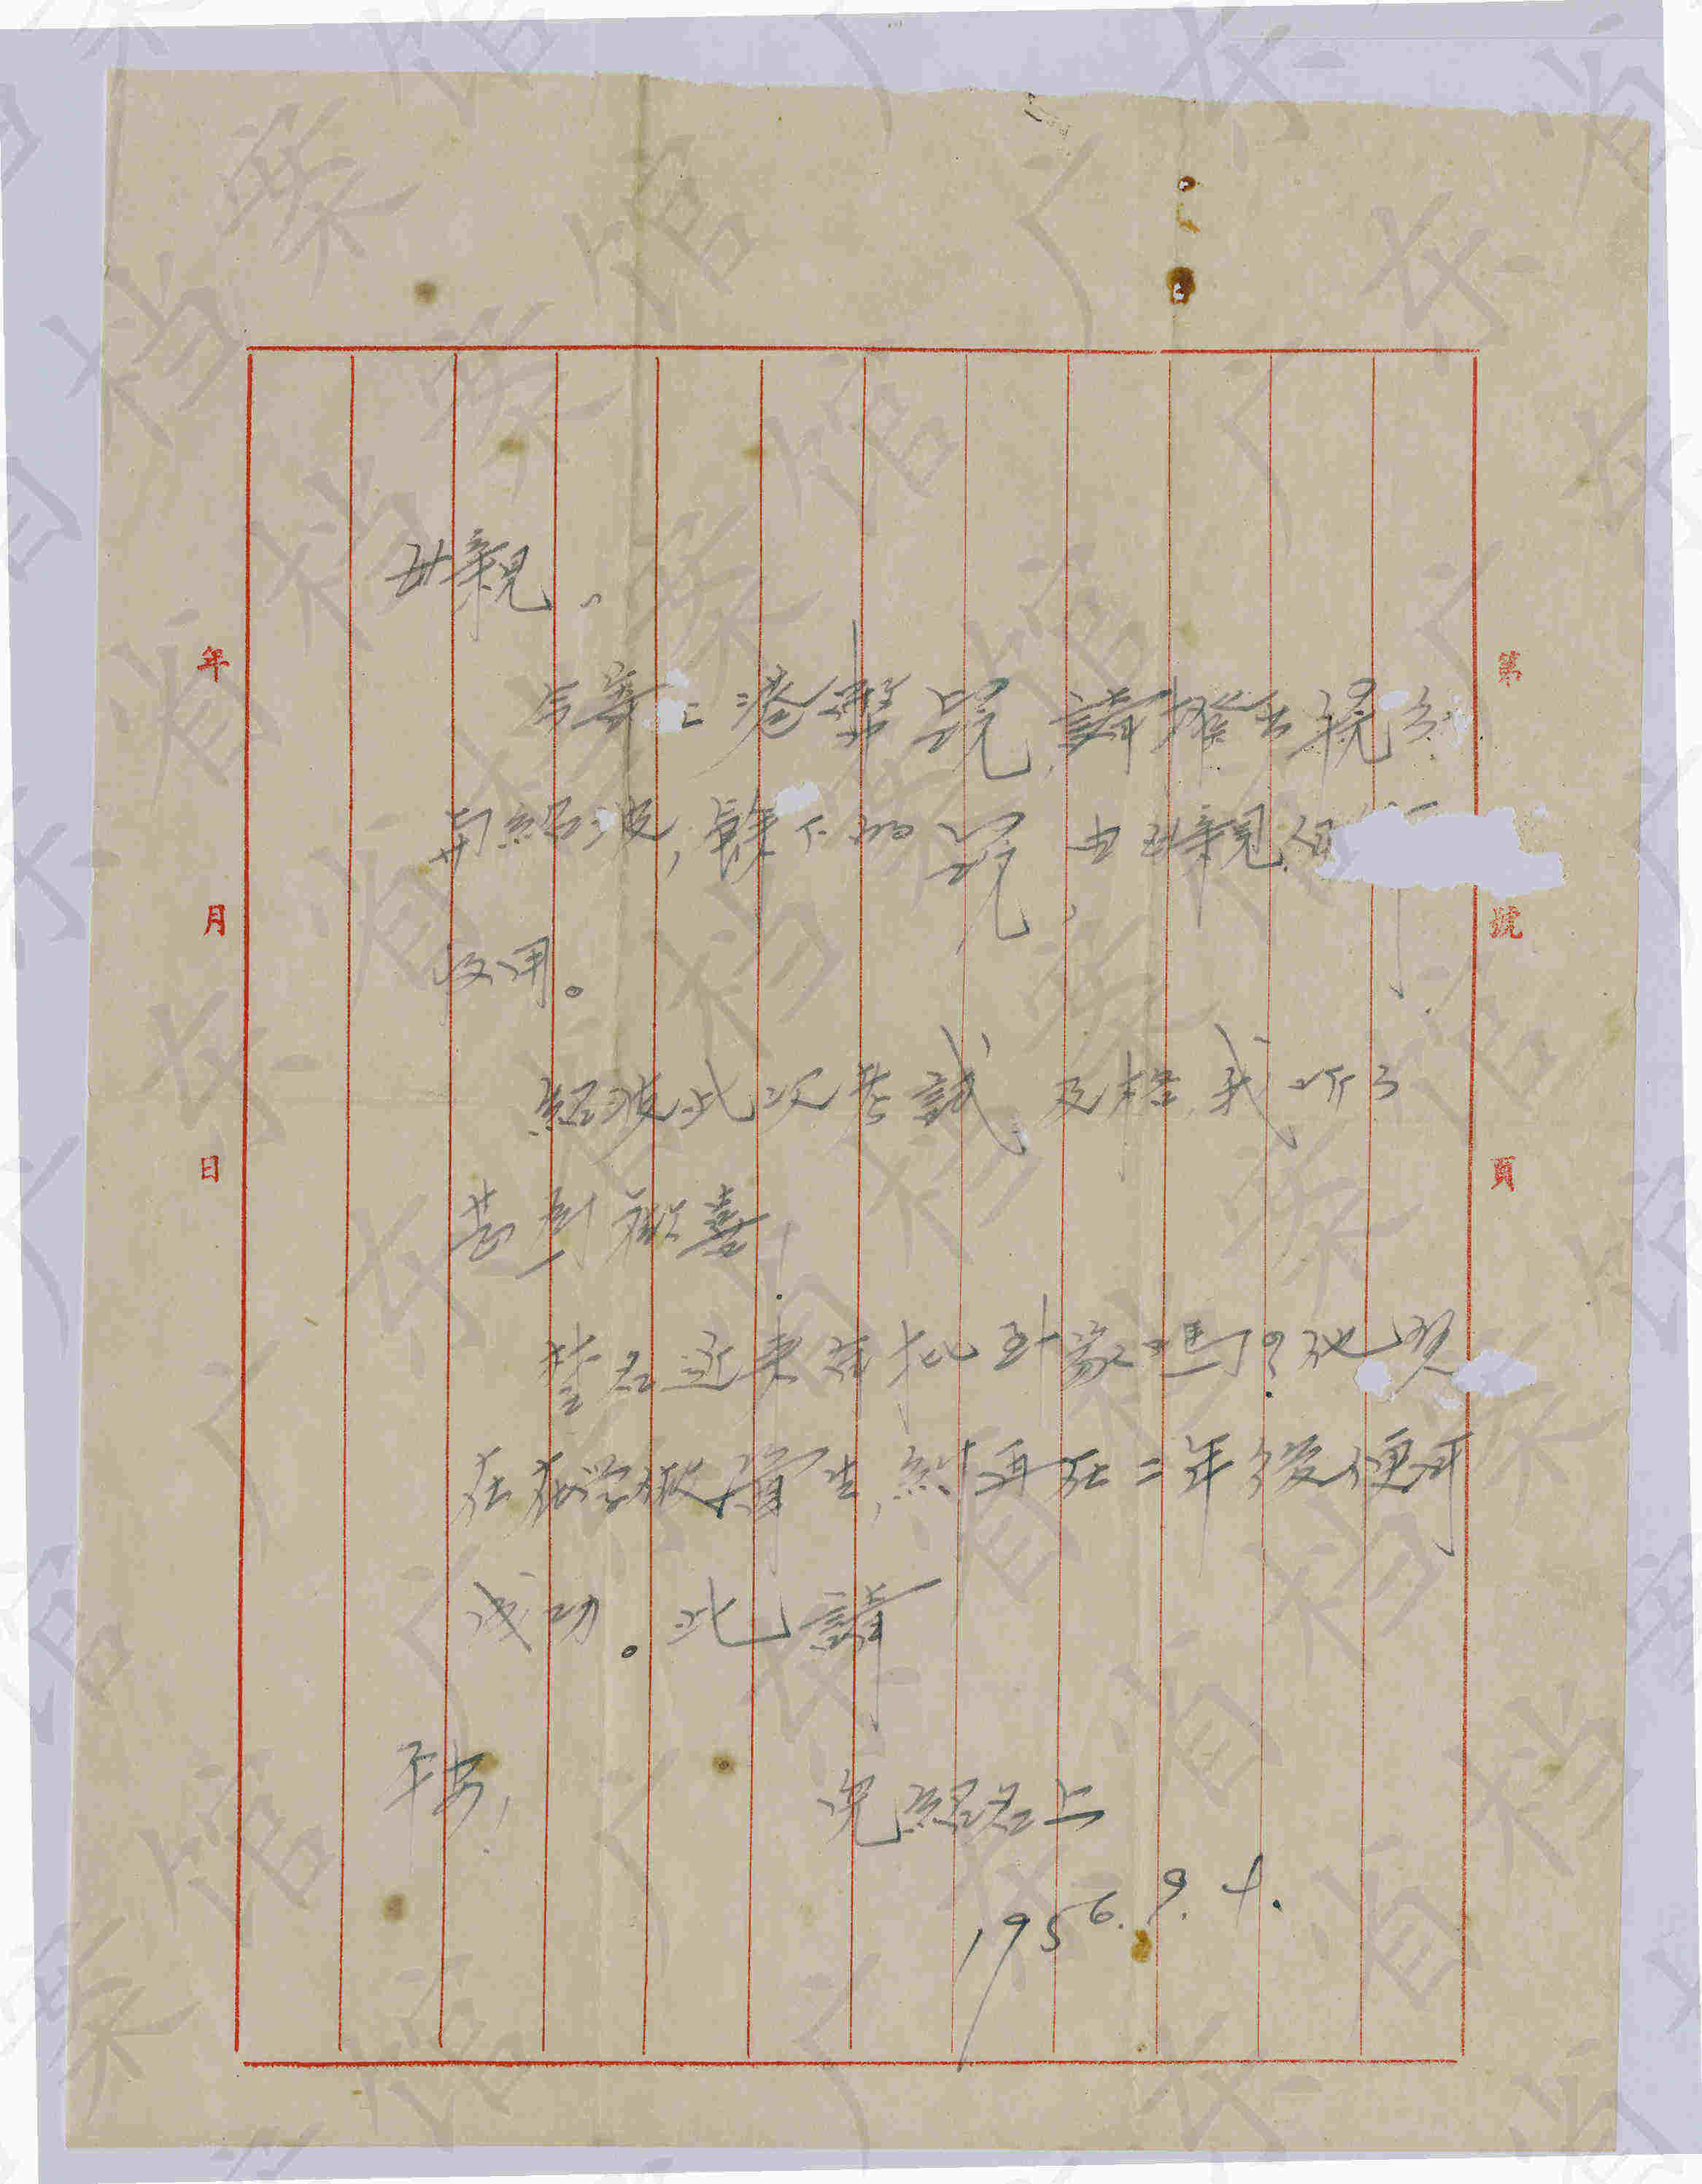 母親、
今寄上港幣 請撥出 給
紹波,餘下的 由母親
使用。
紹波此次考試,及格,我听了
甚到歡喜.
楚君近來有批到家嗎?他現
在在學做 生,約再在二年後便可
成功。此請
平安,
兒紹君上
1956.9.4.
第 號 頁
年 月 日
广东省档案馆